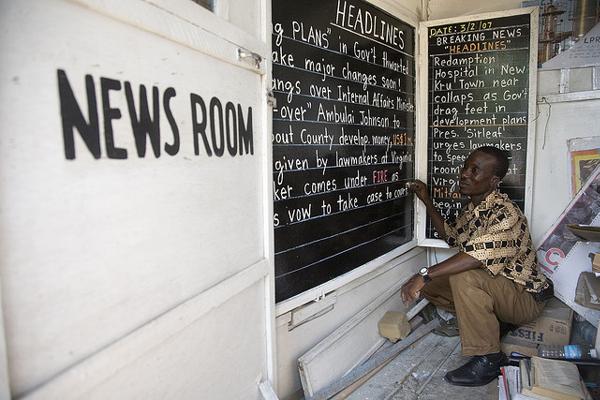 NEWS ROOM
HEADLINES
g PLANS" in Gov't thwarted
ake major changes soon!
angs over Internal Affairs Minist
over" Ambula Johnson to
out County develop. money, US$1m
given by lawmakers at Virginia
ker comes under FIRE as
s vow to take case to court
DATE: 3/2/07
BREAKING NEWS
"HEADLINES"
Redemption
Hospital in New
Kru Town near
collaps as Gov't
drag feet in
development plans
Pres. Sirleaf
urges lawmakers
to spee
room
virg
Milit
begin
FIES